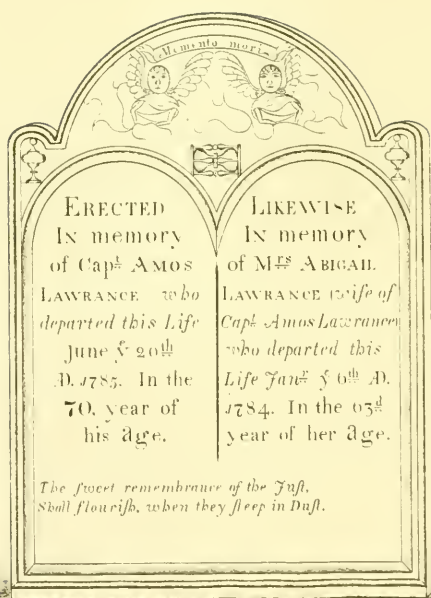 Memento mori
ERECTED
In memory
of Capt. AMOS
LAWRANCE who
departed this Life
June ye 20th
AD. 1785. In the
70. year of
his Age.
LIKEWISE
In memory
of Mrs ABIGAIL
LAWRANCE wife of
Capt. Amos Lawrance
who departed this
Life Janr. ye 6th AD.
1784. In the 63d
year of her Age.
The ſweet remembrance of the Juſt,
Shall flouriſh, when they ſleep in Duſt.